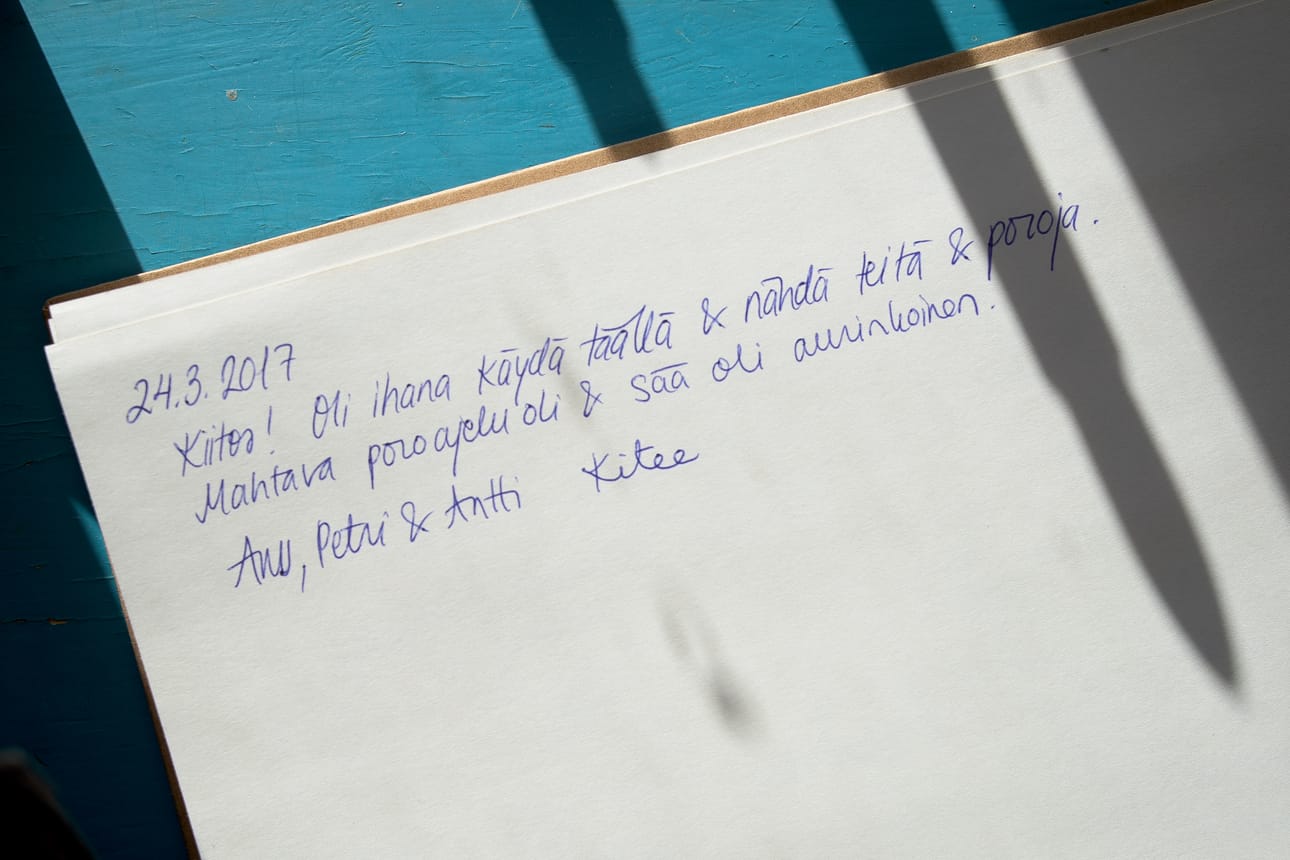 24.3.2017
Kiitos! Oli ihana käydä täällä & nähdä teitä & poroja.
Mahtava poroajelu oli & sää oli aurinkoinen.
Anu, Petri & Antti Kitee